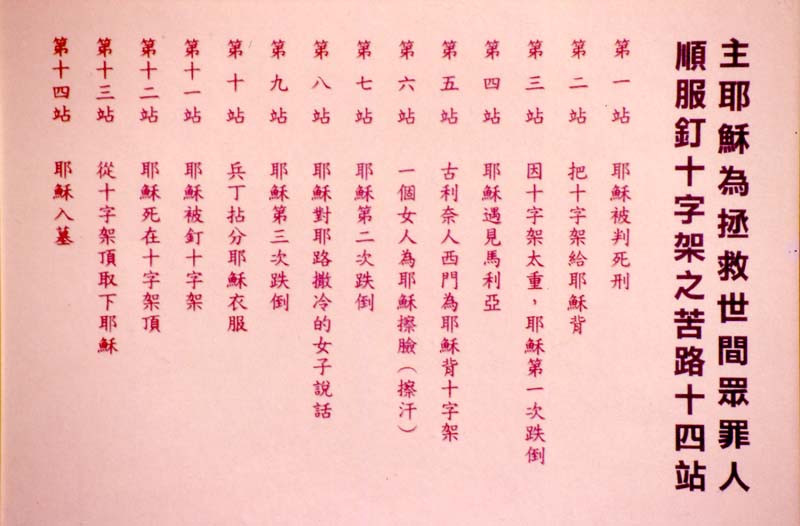 主耶穌為拯救世間眾罪人
順服釘十字架之苦路十四站
第一站 耶穌被判死刑
第二站 把十字架給耶穌背
第三站 因十字架太重，耶穌第一次跌倒
第四站 耶穌遇見馬利亞
第五站 古利奈人西門為耶穌背十字架
第六站 一個女人為耶穌擦臉（擦汗）
第七站 耶穌第二次跌倒
第八站 耶穌對耶路撒冷的女子說話
第九站 耶穌第三次跌倒
第十站 兵丁拈分耶穌衣服
第十一站 耶穌被釘十字架
第十二站 耶穌死在十字架頂
第十三站 從十字架頂取下耶穌
第十四站 耶穌入墓